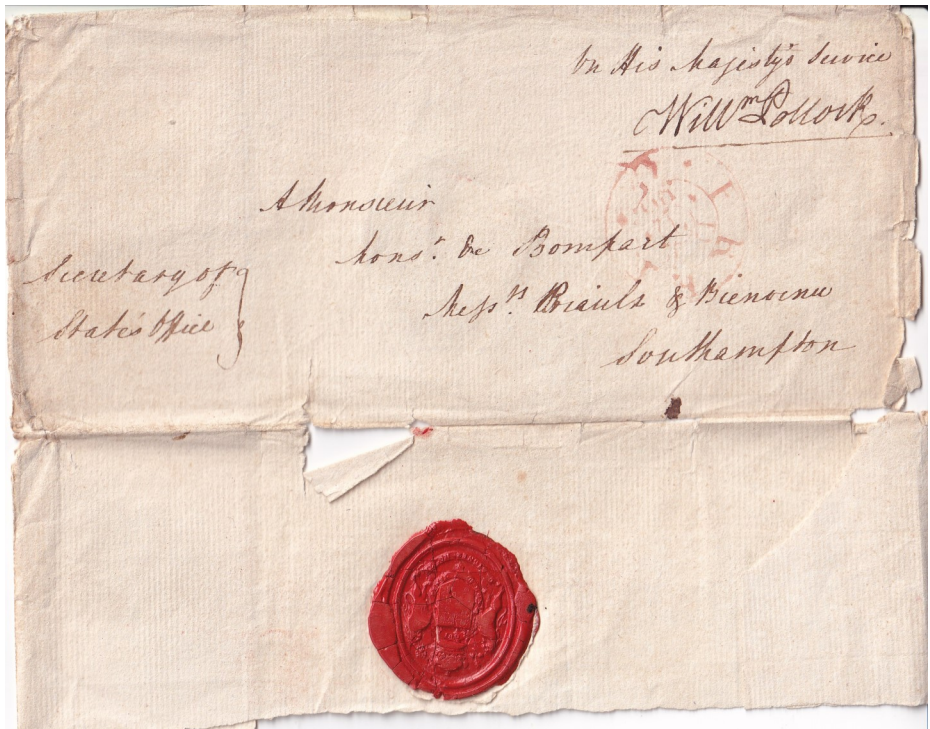 On His Majesty's Service
Willm Pollock.
A Monsieur
Monsr. de Bompart
Messrs Priaulx & Bienvenu
Southampton
Secretary of
State's Office